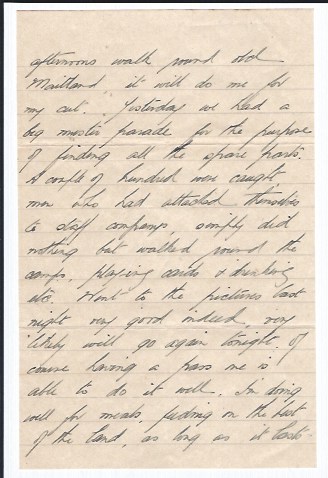 afternoons walk round old
Maitland it will do me for
my cut. Yesterday we had a
big muster parade for the purpose
of finding all the spare parts.
A couple of hundred were caught
men who had attached themselves
to staff companys, simply did
nothing but walked round the
camps. playing cards & drinking
etc. Went to the pictures last
night very good indeed, very
likely will go again tonight. Of
course having a pass one is
able to do it well. I'm doing
well for meals, feeding on the best
of the land, as long as it lasts.